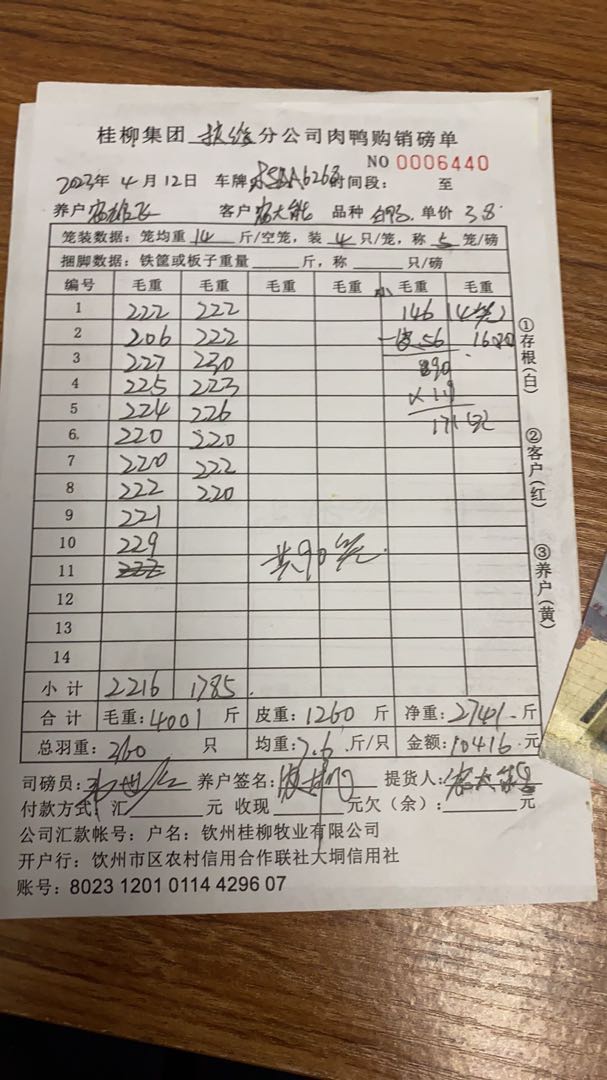 桂柳集团 扶绥 分公司肉鸭购销磅单
NO 0006440
2023年 4 月 12日 车牌 A6268 时间段: 至
养户 客户 品种 单价 3.8
笼装数据: 笼均重 14 斤/空笼, 装 4 只/笼, 称 5 笼/磅
捆脚数据: 铁筐或板子重量 斤, 称 只/磅
编号 毛重 毛重 毛重 毛重 毛重 毛重
1 222 222 146 (4笼)
2 206 222 -56 1680
3 227 230 90
4 225 223 ×1.9
5 224 226 171元
6 220 220
7 220 222
8 222 220
9 221
10 229 共90笼
11 222
12
13
14
小计 2216 1785
合计 毛重: 4001 斤 皮重: 1260 斤 净重: 2741 斤
总羽重: 360 只 均重: 7.6 斤/只 金额: 10416 元
司磅员: 养户签名: 提货人:
付款方式: 汇 元 收现 元欠(余): 元
公司汇款帐号: 户名: 钦州桂柳牧业有限公司
开户行: 饮州市区农村信用合作联社大垌信用社
账号: 8023 1201 0114 4296 07
①存根(白)
②客户(红)
③养户(黄)